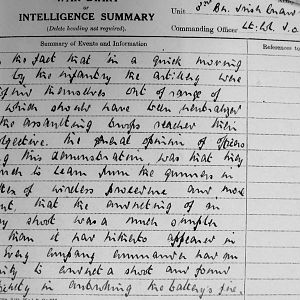 WAR DIARY
OF
INTELLIGENCE SUMMARY
(Delete heading not required).
Unit 3rd Bn. Irish Guards
Commanding Officer Lt. Col. J.O.
Summary of Events and Information
References to
the fact that in a quick moving
by the infantry the artillery were
find themselves out of range of
which should have been neutralized
the assaulting troops reached their
objective. The general opinion of officers
this demonstration, was that they
much to learn from the gunners in
of wireless procedure and more
that the correcting of an
shoot was a much simpler
than it had hitherto appeared in
every company commander had an
to correct a shoot and found
in correcting the battery's fire.